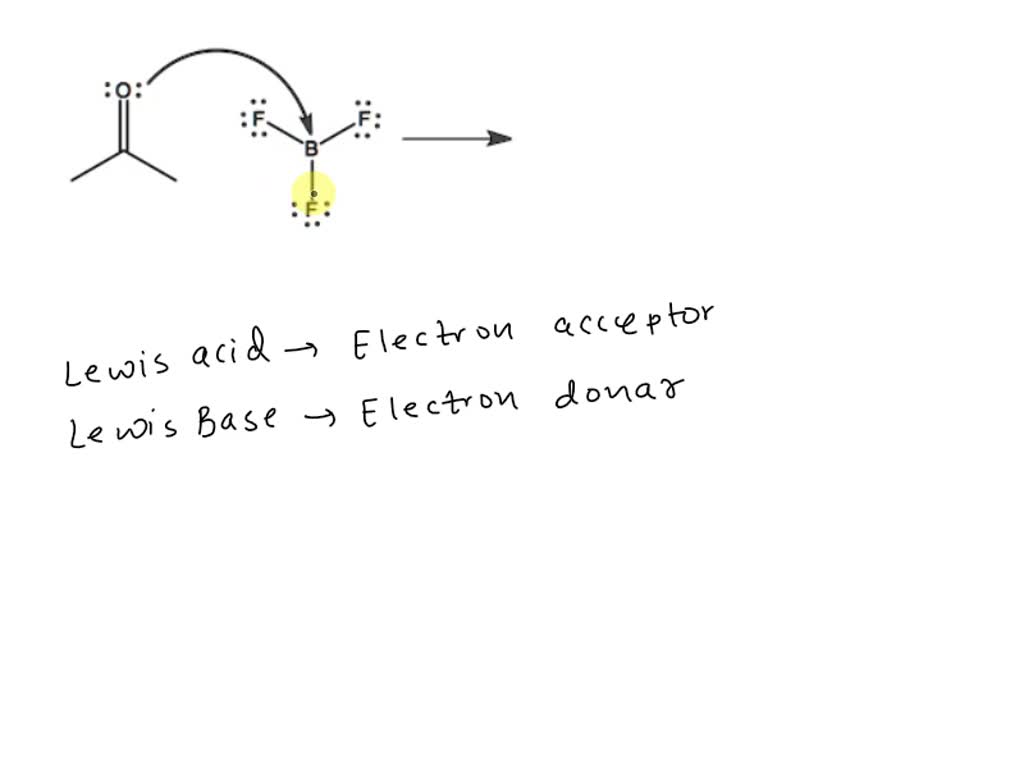 :O:
:F
F:
B
:F:
Lewis acid → Electron acceptor
Lewis Base → Electron donar